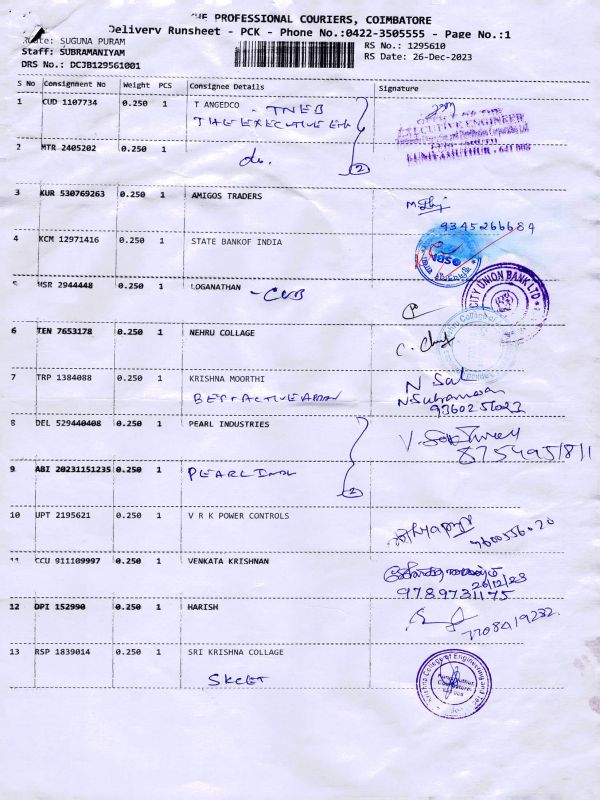 THE PROFESSIONAL COURIERS, COIMBATORE
Delivery Runsheet - PCK - Phone No.:0422-3505555 - Page No.:1
Route: SUGUNA PURAM
RS No.: 1295610
Staff: SUBRAMANIYAM
RS Date: 26-Dec-2023
DRS No.: DCJB129561001
S No Consignment No Weight PCS Consignee Details Signature
1 CUD 1107734 0.250 1 T ANGEDCO - TNEB
THE EXECUTIVE
EXECUTIVE ENGINEER
KUNIYAMUTHUR
2 MTR 2405202 0.250 1 do. 2
3 KUR 530769263 0.250 1 AMIGOS TRADERS
9345266689
4 KCM 12971416 0.250 1 STATE BANKOF INDIA
5 MSR 2944448 0.250 1 LOGANATHAN - CUB
CITY UNION BANK LTD
6 TEN 7653178 0.250 1 NEHRU COLLAGE
7 TRP 1384088 0.250 1 KRISHNA MOORTHI
8 DEL 529440408 0.250 1 PEARL INDUSTRIES
9 ABI 20231151235 0.250 1 PEARL IND 2
10 UPT 2195621 0.250 1 V R K POWER CONTROLS
9600556020
11 CCU 911109997 0.250 1 VENKATA KRISHNAN
26/12/23
9789731175
12 DPI 152990 0.250 1 HARISH
7708419232
13 RSP 1839014 0.250 1 SRI KRISHNA COLLAGE
SKCET
Krishna College of Engineering and
Coimbatore